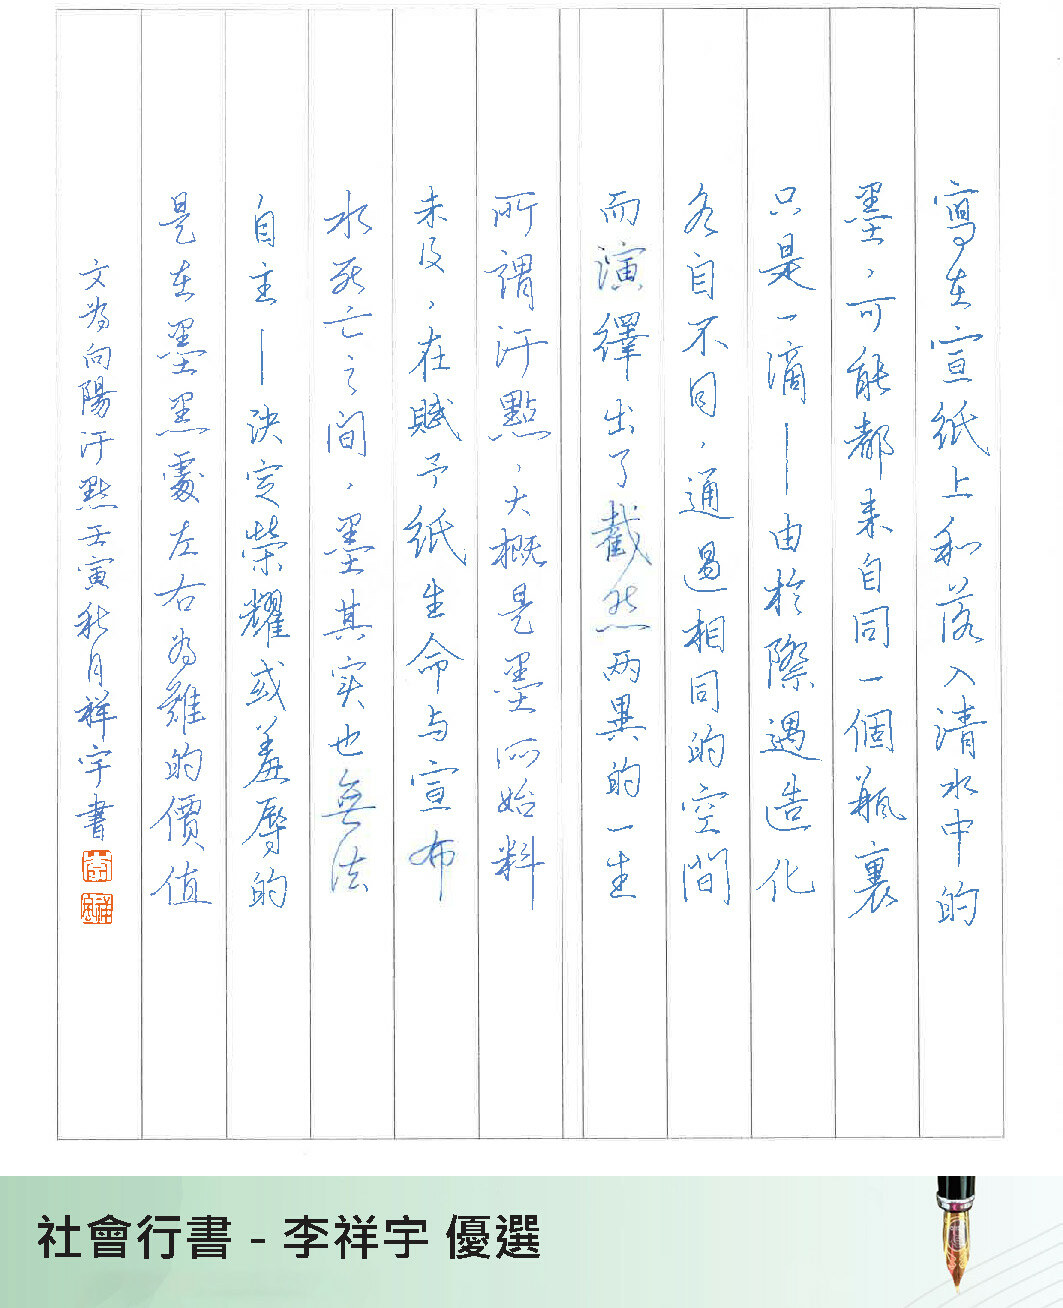 寫在宣紙上和落入清水中的
墨，可能都來自同一個瓶裏
只是一滴—由於際遇造化
各自不同，通過相同的空間
而演繹出了截然兩異的一生
所謂汙點，大概是墨所始料
未及，在賦予紙生命与宣布
水死亡之間，墨其实也無法
自主—決定榮耀或羞辱的
是在墨墨處左右為難的價值
文為向陽汙點壬寅秋月祥宇書
李
社會行書 - 李祥宇 優選